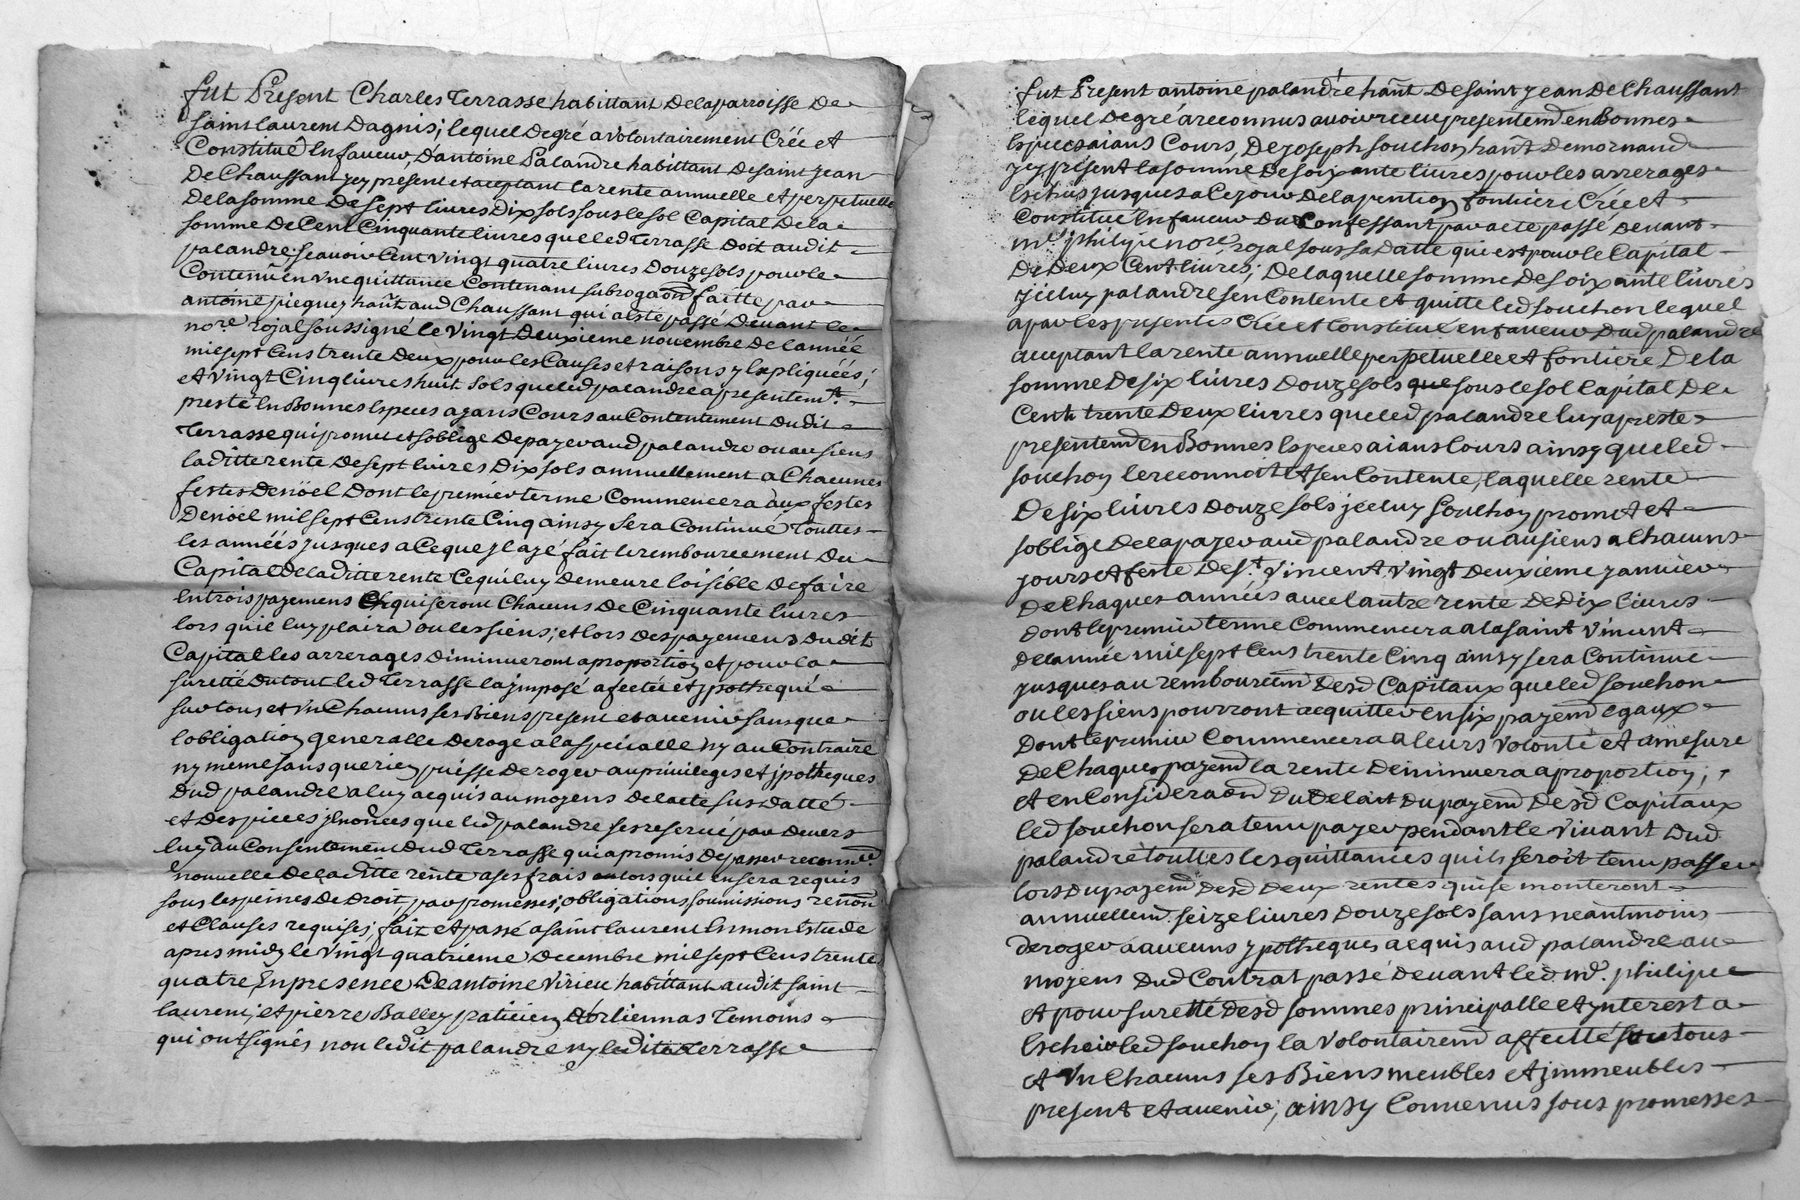 fut Present Charles Terrasse habittant delaparroisse de
saint laurent dagnis; lequel degré a volontairement Créé et
Constitué en faveur d'antoine Palandre habittant desaint jean
de Chaussant jcy present et aceptant la rente annuelle et perpetuelle
delasomme de sept livres dix sols sous le sol Capital dela
somme de Cent Cinquante livres que led terrasse doit audit
palandre; scavoir Cent vingt quatre livres douze sols pour le
Contenû en une quittance Contenant subrogaon faitte par
antoine jicquey hant aud Chaussant qui a esté passé devant le
nore rojal soussigné le vingt deuxieme novembre de lannéé
mil sept Cens trente deux pour les Causes et raisons y Expliquéés;
et vingt Cinq livres huit sols que led palandre a presentemt
presté En Bonnes Especes ayans Cours au Contentement dudit
Terrasse qui promet et soblige de payer aud palandre ou au siens
laditte rente de sept livres dix sols annuellement a Chacunes
festes de nöel dont le premier terme Commencera aux festes
de nöel mil sept Cens trente Cinq ainsy sera Continué touttes
les annéés jusques a Ce que jl ayé fait le remboursement du
Capital de laditte rente Ce qui luy demeure loisible de faire
En trois payemens qui seront Chacuns de Cinquante livres
lors quil luy plaira ou les siens; et lors des payemens dudit
Capital les arrerages diminueront a proportion et pour la
suretté du tout led Terrasse la jmposé afecté et jpothequé
sur tous et un Chacuns ses Biens present et avenir sans que
lobligation generalle deroge a la specialle ny au Contraire
ny meme sans que rien puisse deroger au privileges et jpotheques
dud palandre a luy acquis au moyens de lacte sus datté
et des pieces jenoncés que led palandre ses reservé par devers
luy du Consentement dud Terrasse qui a promis de passer
nouvelle de laditte rente a ses frais lors quil en sera requis
sous les peines de droit, par promesses, obligations soumissions renon
et Clauses requises; fait et passé a saint laurent En mon Estude
apres midy le vingt quatrieme decembre mil sept Cens trente
quatre, En presence de antoine virieu habittant audit saint
laurent, et pierre Balley paticien dorliennas Temoins
qui ont signés non ledit palandre ny ledit terrasse
fut Present antoine palandre hant de saint jean de Chaussant
lequel de gré a reconnus avoir receu presentemd en Bonnes
Especes aians Cours, de joseph souchon hant de mornand
jcy present la somme de soixante livres pour les arrerages
Eschus jusques a Ce jour de la pention fontiere Créé et
Constitué En faveur du Confessant par acte passé devant
mre philipe nore rojal sous sa datte qui est pour le Capital
de deux Cent livres; de laquelle somme de soixante livres
jceluy palandre sen Contente et quitte led souchon lequel
a par les presentes Créé et Constitué en faveur dud palandre
acceptant la rente annuelle perpetuelle et fontiere de la
somme de six livres douze sols sous le sol Capital de
Cent trente deux livres que led palandre luy a preste
presentemd en Bonnes Especes aians Cours ainsy que led
souchon le reconnoit et sen Contente, laquelle rente
de six livres douze sols jceluy souchon promet et
soblige de la payer aud palandre ou au siens a Chacuns
jours et feste de st vincent vingt deuxieme janvier
de Chaques annéés avec lautre rente de dix livres
dont le premier terme Commencera a la saint vincent
de lannéé mil sept Cens trente Cinq ainsy sera Continué
jusques au remboursemd desd Capitaux que led souchon
ou les siens pourront acquitter en six payemd egaux
dont le premier Commencera a leurs volonté et a mesure
de Chaques payemd la rente deminuera a proportion;
et en Consideraon du delait du payemd desd Capitaux
led souchon sera tenu payer pendant le vivant dud
palandre touttes les quittances quils seroit tenu passer
lors du payemd desd deux rentes qui se monteront
annuellemd seize livres douze sols sans néantmoins
deroger a aucuns ypotheques acquis aud palandre au
mojens dud Contrat passé devant led me philipe
et pour suretté desd sommes principalle et ynterest a
Escheoir led souchon la volontairemd affectté sur tous
et un Chacuns ses Biens meubles et jmmeubles
present et avenir; ainsy Convenus sous promesses